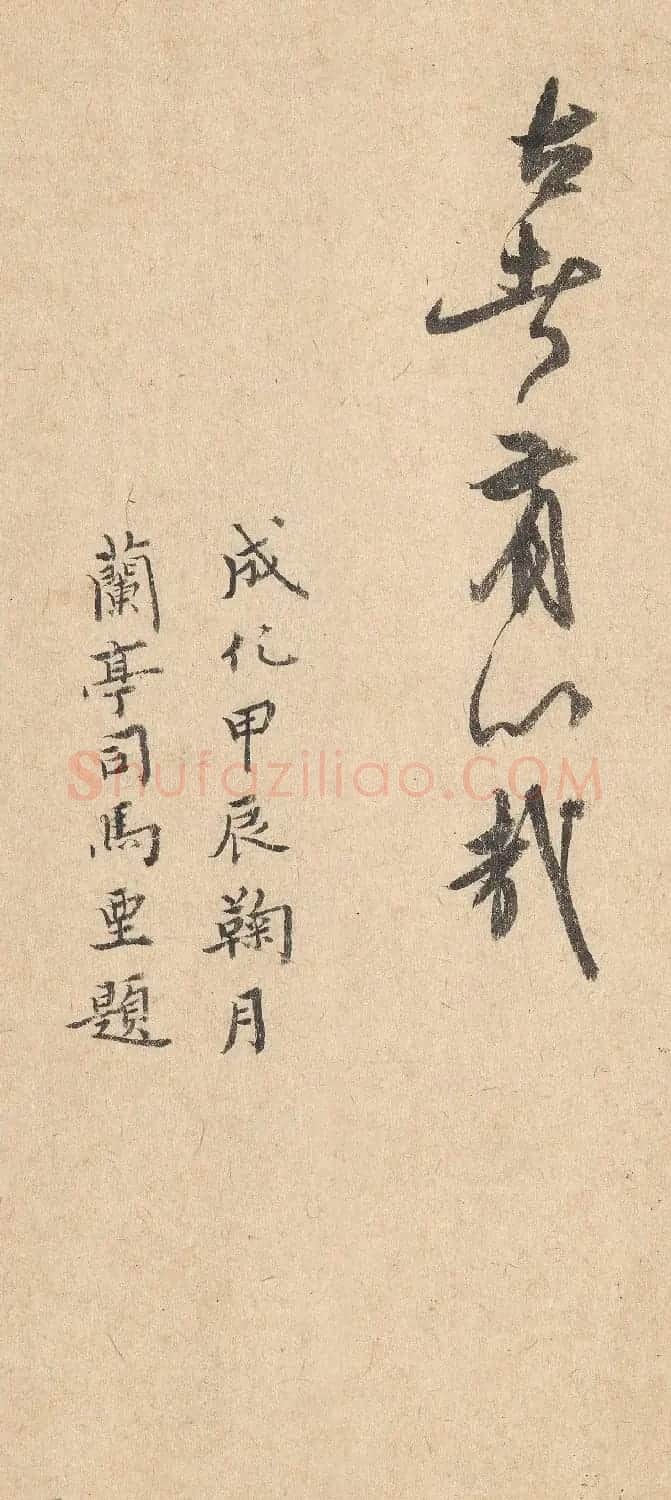 古者有以哉
成化甲辰鞠月
蘭亭司馬垔題
Shufaziliao.COM